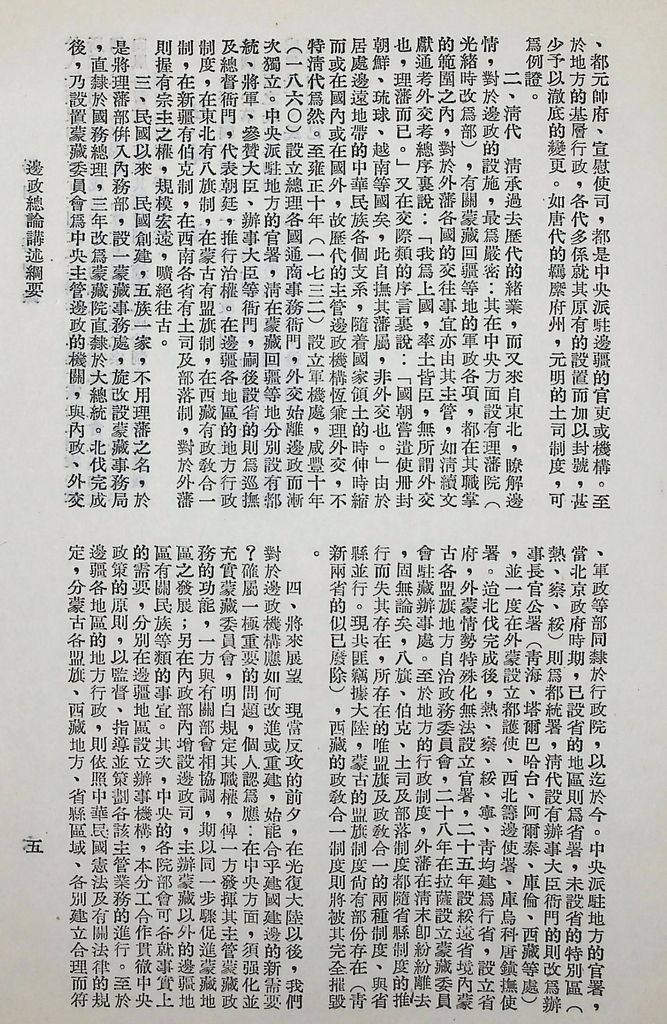 、都元帥府、宣慰使司,都是中央派駐邊疆的官吏或機構。至
於地方的基層行政,各代多係就其原有的設置而加以封號,甚
少予以澈底的變更。如唐代的羈縻府州,元明的土司制度,可
為例證。
二、淸代 淸承過去歷代的緒業,而又來自東北,瞭解邊
情,對於邊政的設施,最為嚴密:其在中央方面設有理藩院(
光緒時改為部),有關蒙藏回疆等地的軍政各項,都在其職掌
的範圍之內,對於外藩各國的交往事宜亦由其主管,如淸續文
獻通考外交考總序裏說:「我為上國,率土皆臣,無所謂外交
也,理藩而已。」又在交際類的序言裏說:「國朝嘗遣使册封
朝鮮、琉球、越南等國矣,此自撫其藩屬,非外交也。」由於
居處邊遠地帶的中華民族各個支系,隨着國家領土的時伸時縮
而或在國內或在國外,故歷代的主管邊政機構恆兼理外交,不
特淸代為然。至雍正十年(一七三二)設立軍機處,咸豐十年
(一八六〇)設立總理各國通商事務衙門,外交始離邊政而漸
次獨立。中央派駐地方的官署,淸在蒙藏回疆等地分別設有都
統、將軍、參贊大臣、辦事大臣等衙門,嗣後設省的則為巡撫
及總督衙門,代表朝廷,推行治權。在邊疆各地區的地方行政
制度,在東北有八旗制,在蒙古有盟旗制,在西藏有政教合一
制,在新疆有伯克制,在西南各省有土司及部落制,對於外藩
則握有宗主之權,規模宏遠,曠絕往古。
三、民國以來 民國創建,五族一家,不用理藩之名,於
是將理藩部倂入內務部,設一蒙藏事務處,旋改設蒙藏事務局
,直隸於國務總理,三年改為蒙藏院直隸於大總統。北伐完成
後,乃設置蒙藏委員會為中央主管邊政的機關,與內政、外交
邊政總論講述綱要
、軍政等部同隸於行政院,以迄於今。中央派駐地方的官署,
當北京政府時期,已設省的地區則為省署,未設省的特別區(
熱、察、綏)則為都統署,淸代設有辦事大臣衙門的則改為辦
事長官公署(靑海、塔爾巴哈台、阿爾泰、庫倫、西藏等處)
,並一度在外蒙設立都護使、西北籌邊使署、庫烏科唐鎮撫使
署。迨北伐完成後,熱、察、綏、寧、靑均建為行省,設立省
府,外蒙情勢特殊化無法設立官署,二十五年設綏遠省境內蒙
古各盟旗地方自治政務委員會,二十八年在拉薩設立蒙藏委員
會駐藏辦事處。至於地方的行政制度,外藩在淸末卽紛紛離去
,固無論矣,八旗、伯克、土司及部落制度都隨省縣制度的推
行而失其存在,所存在的唯盟旗及政教合一的兩種制度,與省
縣並行。現共匪竊據大陸,蒙古的盟旗制度尙有部份存在(靑
新兩省的似已廢除),西藏的政教合一制度則將被其完全摧毀
。
四、將來展望 現當反攻的前夕,在光復大陸以後,我們
對於邊政機構應如何改進或重建,始能合乎建國建邊的新需要
?確屬一極重要的問題,個人認為應:在中央方面,須强化並
充實蒙藏委員會,明白規定其職權,俾一方發揮其主管蒙藏政
務的功能,一方與有關部會相協調,期以同一步驟促進蒙藏地
區之發展;另在內政部內增設邊政司,主辦蒙藏以外的邊疆地
區有關民族等類的事宜。其次,中央的各院部會可各就事實上
的需要,分別在邊疆地區設立辦事機構,本分工合作貫徹中央
政策的原則,以監督、指導並策劃各該主管業務的進行。至於
邊疆各地區的地方行政,則依照中華民國憲法及有關法律的規
定,分蒙古各盟旗、西藏地方、省縣區域、各別建立合理而符
五